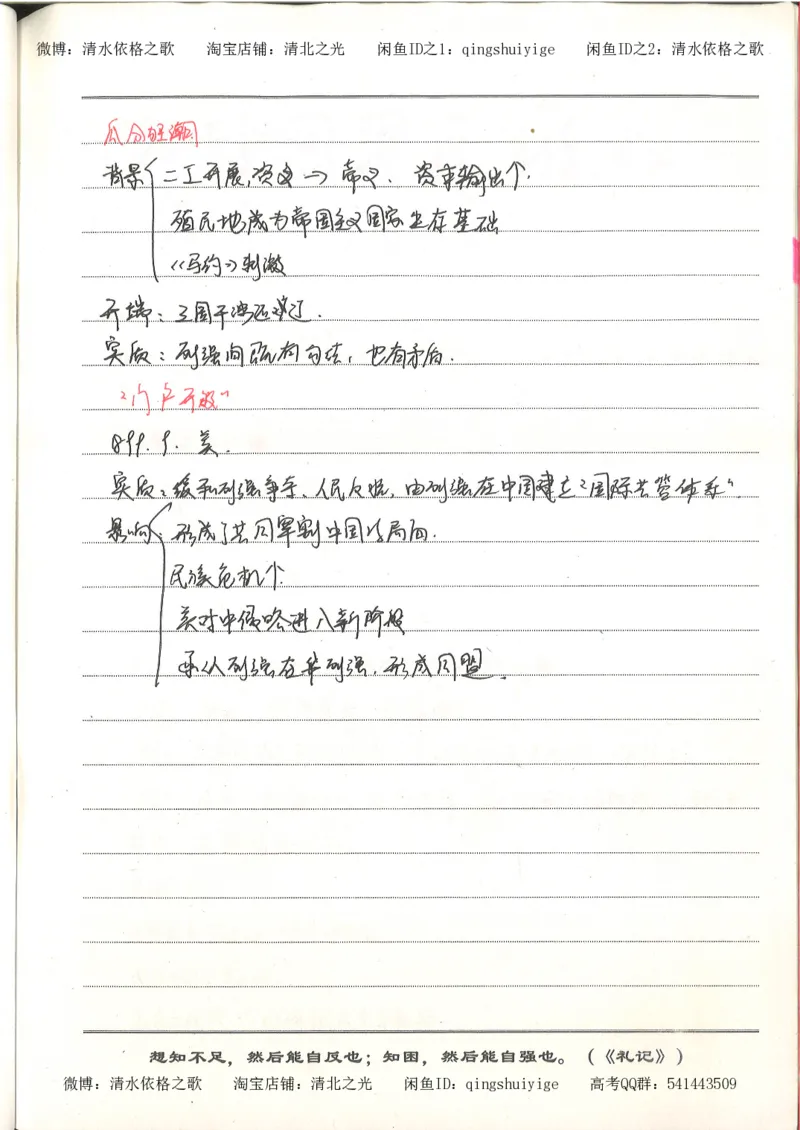 微博：清水依格之歌 淘宝店铺：清北之光 闲鱼ID之1：qingshuiyige 闲鱼ID之2：清水依格之歌
瓜分狂潮
背景 二工开展，资义→帝义、资本输出个.
殖民地成为帝国主义国家生存基础
《马约》刺激
开端：三国干涉还辽.
实质：列强间既有勾结，也有矛盾.
"门户开放"
1899.9.美.
实质：缓和列强争夺、人民反抗，由列强在中国建立"国际共管体系".
影响：形成了共同宰割中国的局面.
民族危机个
美对中侵略进入新阶段
承认列强在华列强，形成同盟.
想知不足，然后能自反也；知困，然后能自强也。（《礼记》）
微博：清水依格之歌 淘宝店铺：清北之光 闲鱼ID：qingshuiyige 高考QQ群：541443509